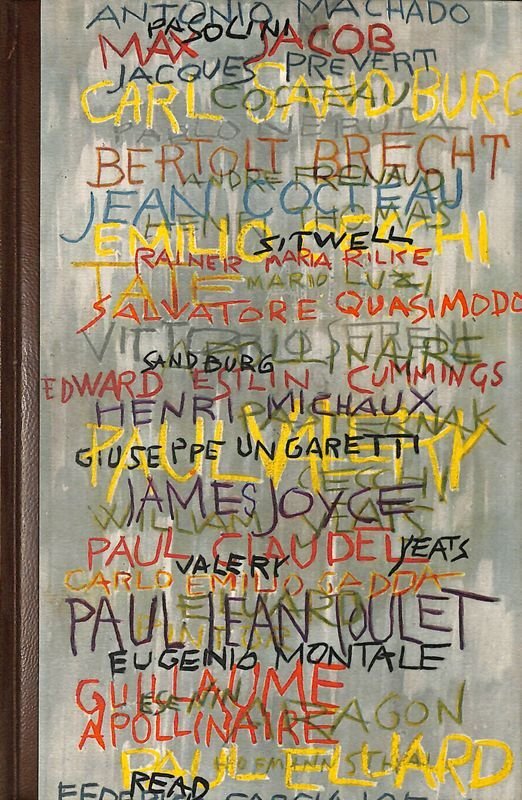 ANTONIO MACHADO
PASOLINI
MAX JACOB
JACQUES PREVERT
COCTEAU
CARL SANDBURG
PABLO NERUDA
BERTOLT BRECHT
ANDRE FRENAUD
JEAN COCTEAU
THOMAS
EMILIO CECCHI
SITWELL
RAINER MARIA RILKE
TATE
MARIO LUZI
SALVATORE QUASIMODO
VITTORIO SERENI
APOLLINAIRE
SANDBURG
EDWARD ESILIN CUMMINGS
HENRI MICHAUX
PASTERNAK
PAUL VALERY
GIUSEPPE UNGARETTI
CECCHI
JAMES JOYCE
WILLIAM YEATS
PAUL CLAUDEL
YEATS
VALERY
CARLO EMILIO GADDA
ELUARD
PAUL JEAN TOULET
EUGENIO MONTALE
GUILLAUME
ESENIN
ARAGON
APOLLINAIRE
HOFMANNSTHAL
PAUL ELUARD
READ